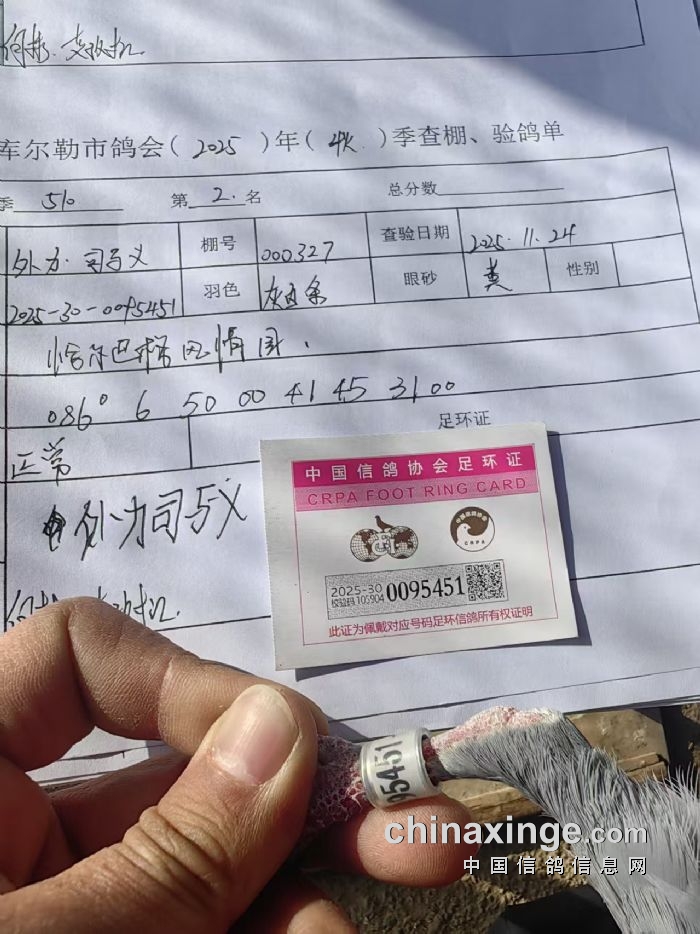 库尔勒市鸽会(2025)年(秋)季查棚、验鸽单
季 510 第 2. 名 总分数
外力·司马义 棚号 000327 查验日期 2025.11.24
2025-30-0095451 羽色 灰白条 眼砂 黄 性别
恰尔巴格风情园.
086° 6 50 00 41 45 31 00
正常 足环证
外力司马义
中国信鸽协会足环证
CRPA FOOT RING CARD
CRPA
2025-30
校验码105904 0095451
此证为佩戴对应号码足环信鸽所有权证明
95451
chinaxinge.com
中国信鸽信息网